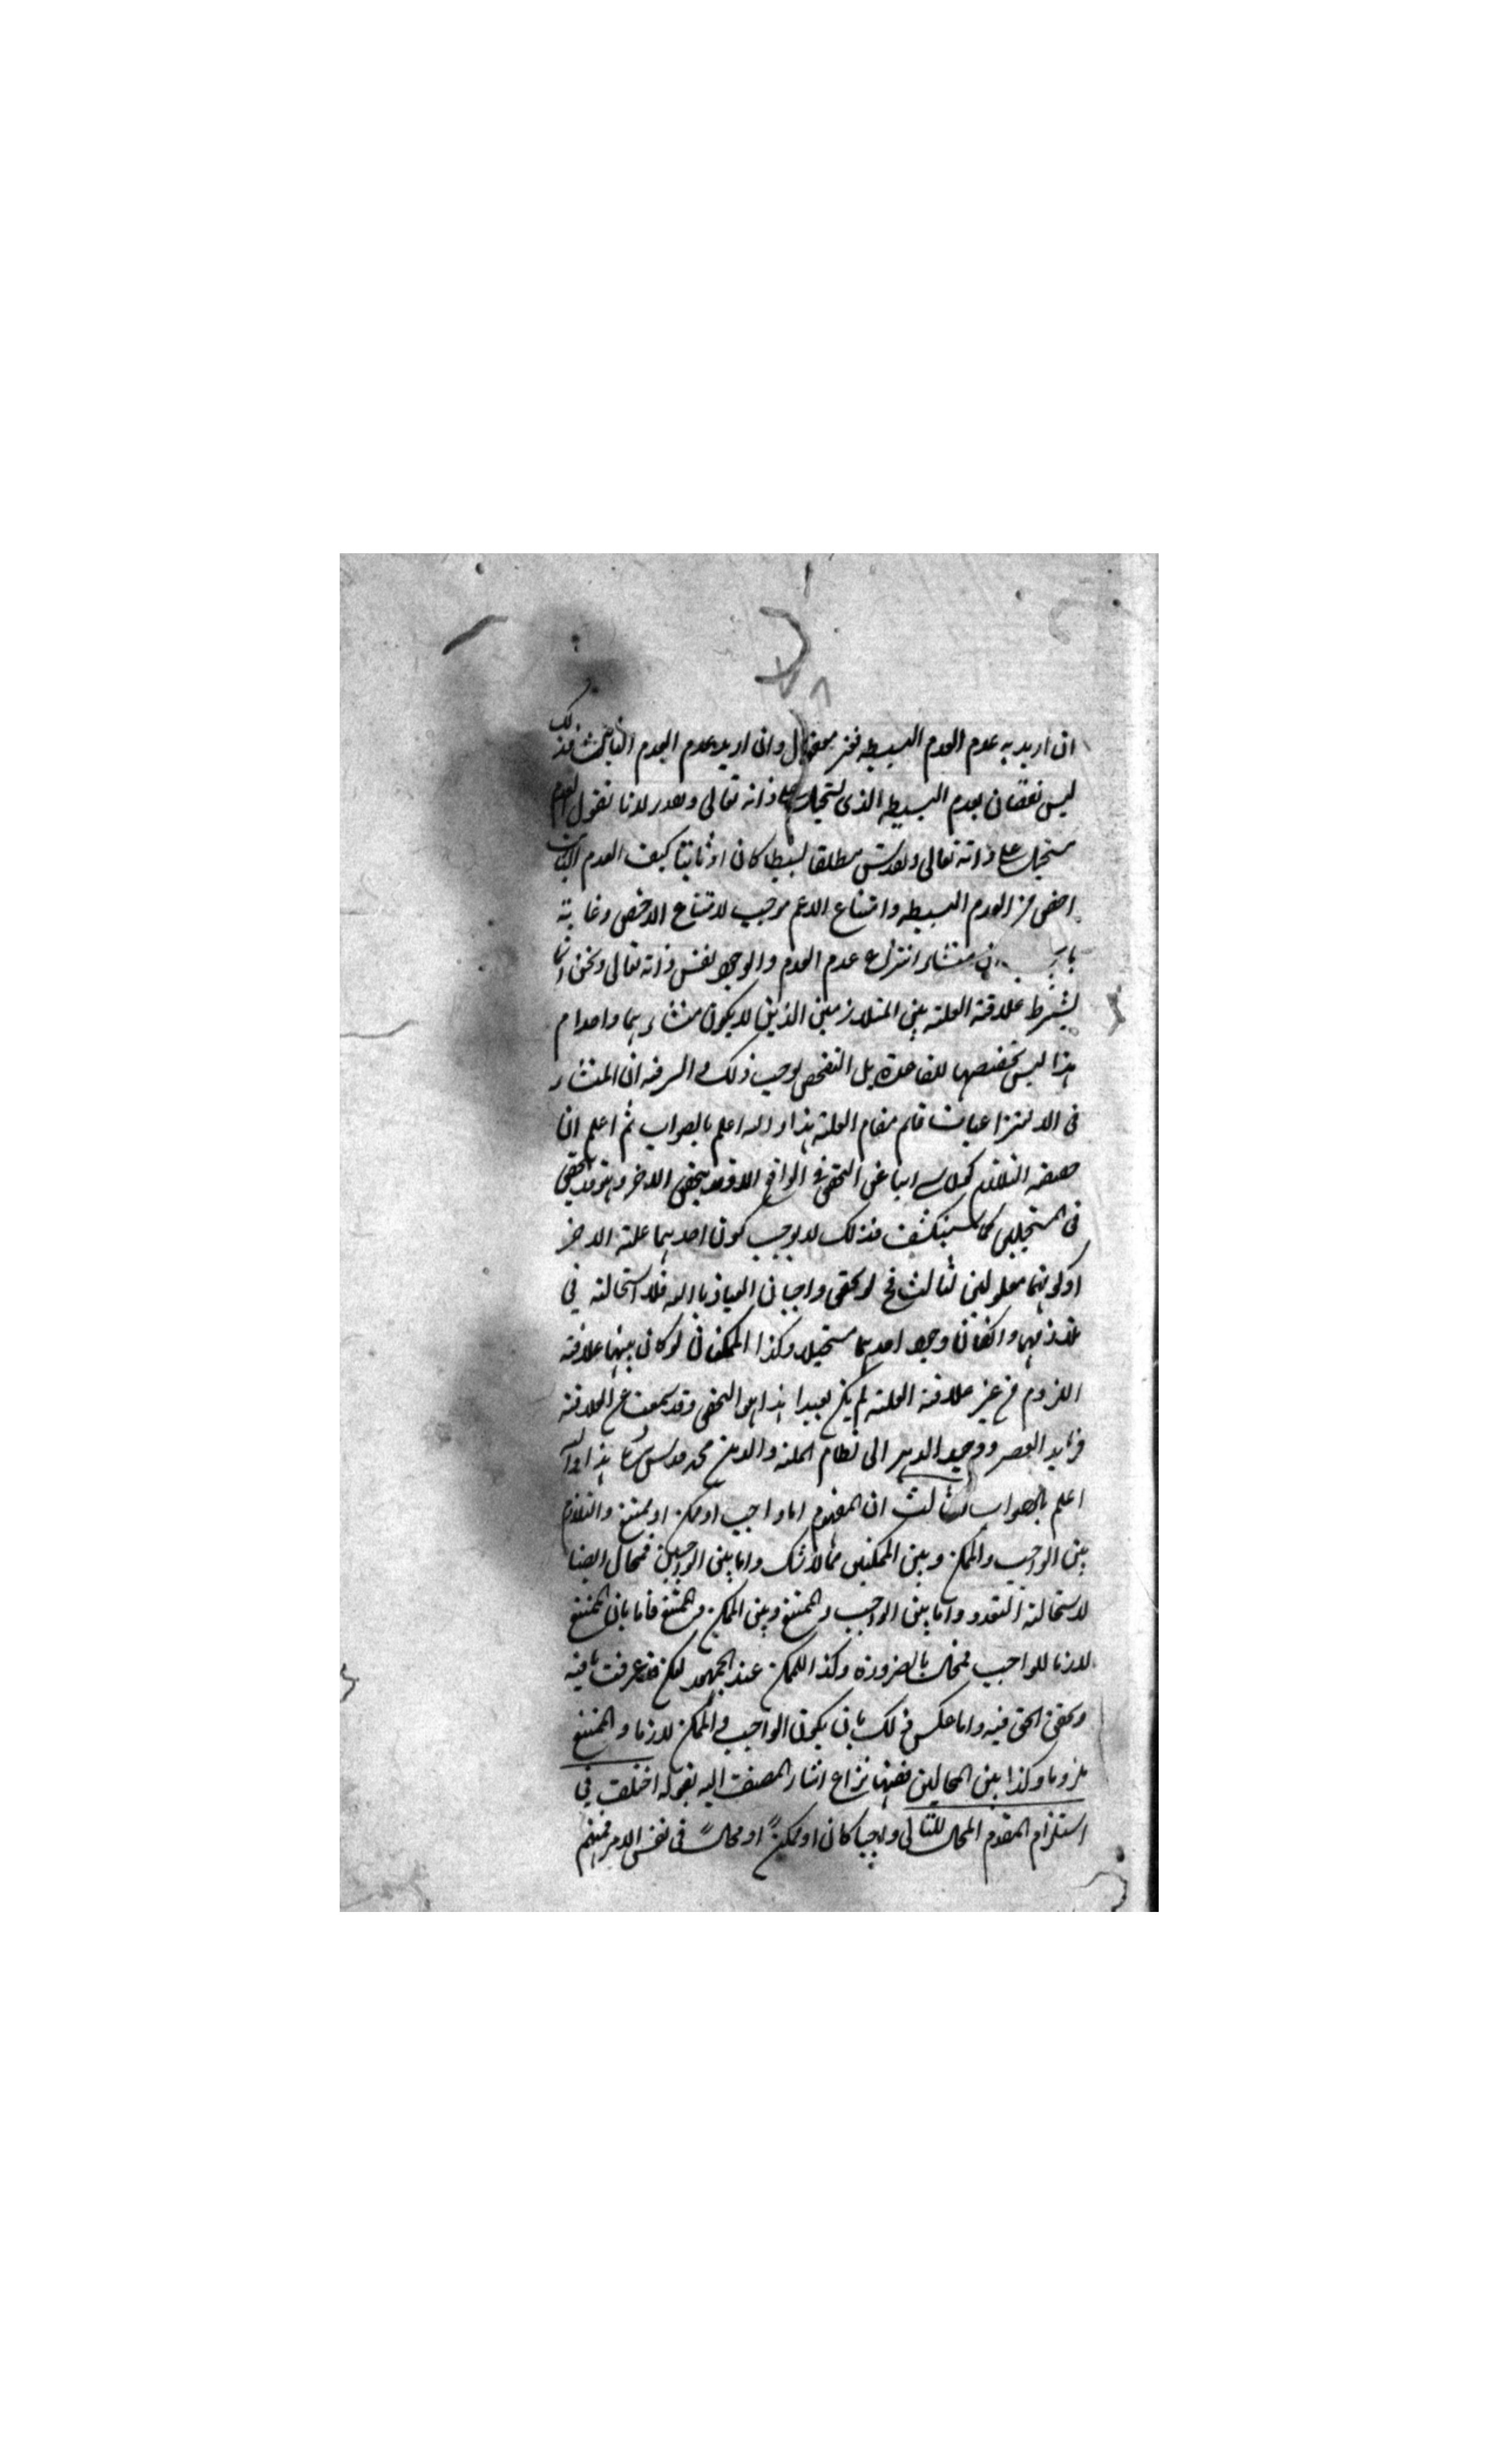 ان اريد به عدم العدم البسيط فغير معقول وان اريد عدم العدم الثابت فذلك
ليس نقضان بعدم البسيط الذى يستحيل على ذاته تعالى وتقدس لانا نقول العدم
مستحيل على ذاته تعالى وتقدس مطلقا بسيطا كان او ثابتا كيف العدم الثابت
اخص من العدم البسيط وامتناع الاعم موجب لامتناع الاخص وغايته
ان منشاء انتزاع عدم العدم والوجود نفس ذاته تعالى ونحن انما
نشترط علاقة العلية بين المتلازمين الذين لا يكون منشاءهما واحدا م
هذا ليس تخصيصا للقاعدة بل التفحص يوجب ذلك و السر فيه ان المنشاء
فى الانتزاعيات قايم مقام العلة هذا والله اعلم بالصواب ثم اعلم ان
حقيقة التلازم التحقق فى الواقع الا وقد يتحقق الاخر وهو قد يتحقق
فى المستحيلين كما سينكشف فذلك لا يوجب كون احدهما علة الاخر
او كونهما معلولين لثالث فح لو تحقق واجبان العياذ بالله فلا استحالة فى
تلازمهما وانفكان وجود احدهما مستحيلا وكذا الممكنان لو كان بينهما علاقة
اللزوم من غير علاقة العلية لم يكن بعيدا هذا هو التحقيق وقد سمعت من العلامة
فريد العصر ووحيد الدهر الى نظام الملة والدين محمد قدس سره هذا والله
اعلم بالصواب الثالث ان المفهوم اما واجب او ممكن او ممتنع والتلازم
بين الواجب والممكن وبين الممكنين مما لا شك واما بين الواجبين فمحال ايضا
لاستحالة التعدد واما بين الواجب والممتنع وبين الممكن والممتنع فأما بان الممتنع
لازما للواجب فمحال بالضرورة وكذا للممكن عند الجمهور لكن قد عرفت ما فيه
وتحقق الحق فيه واما عكس ذلك بان يكون الواجب والممكن لازما والممتنع
ملزوما وكذا بين المحالين ففيها نزاع اشار المصنف اليه بقوله اختلف فى
استلزام المقدم المحال للتالى واجبا كان او ممكنا او محالا فى نفس الامر فمنهم